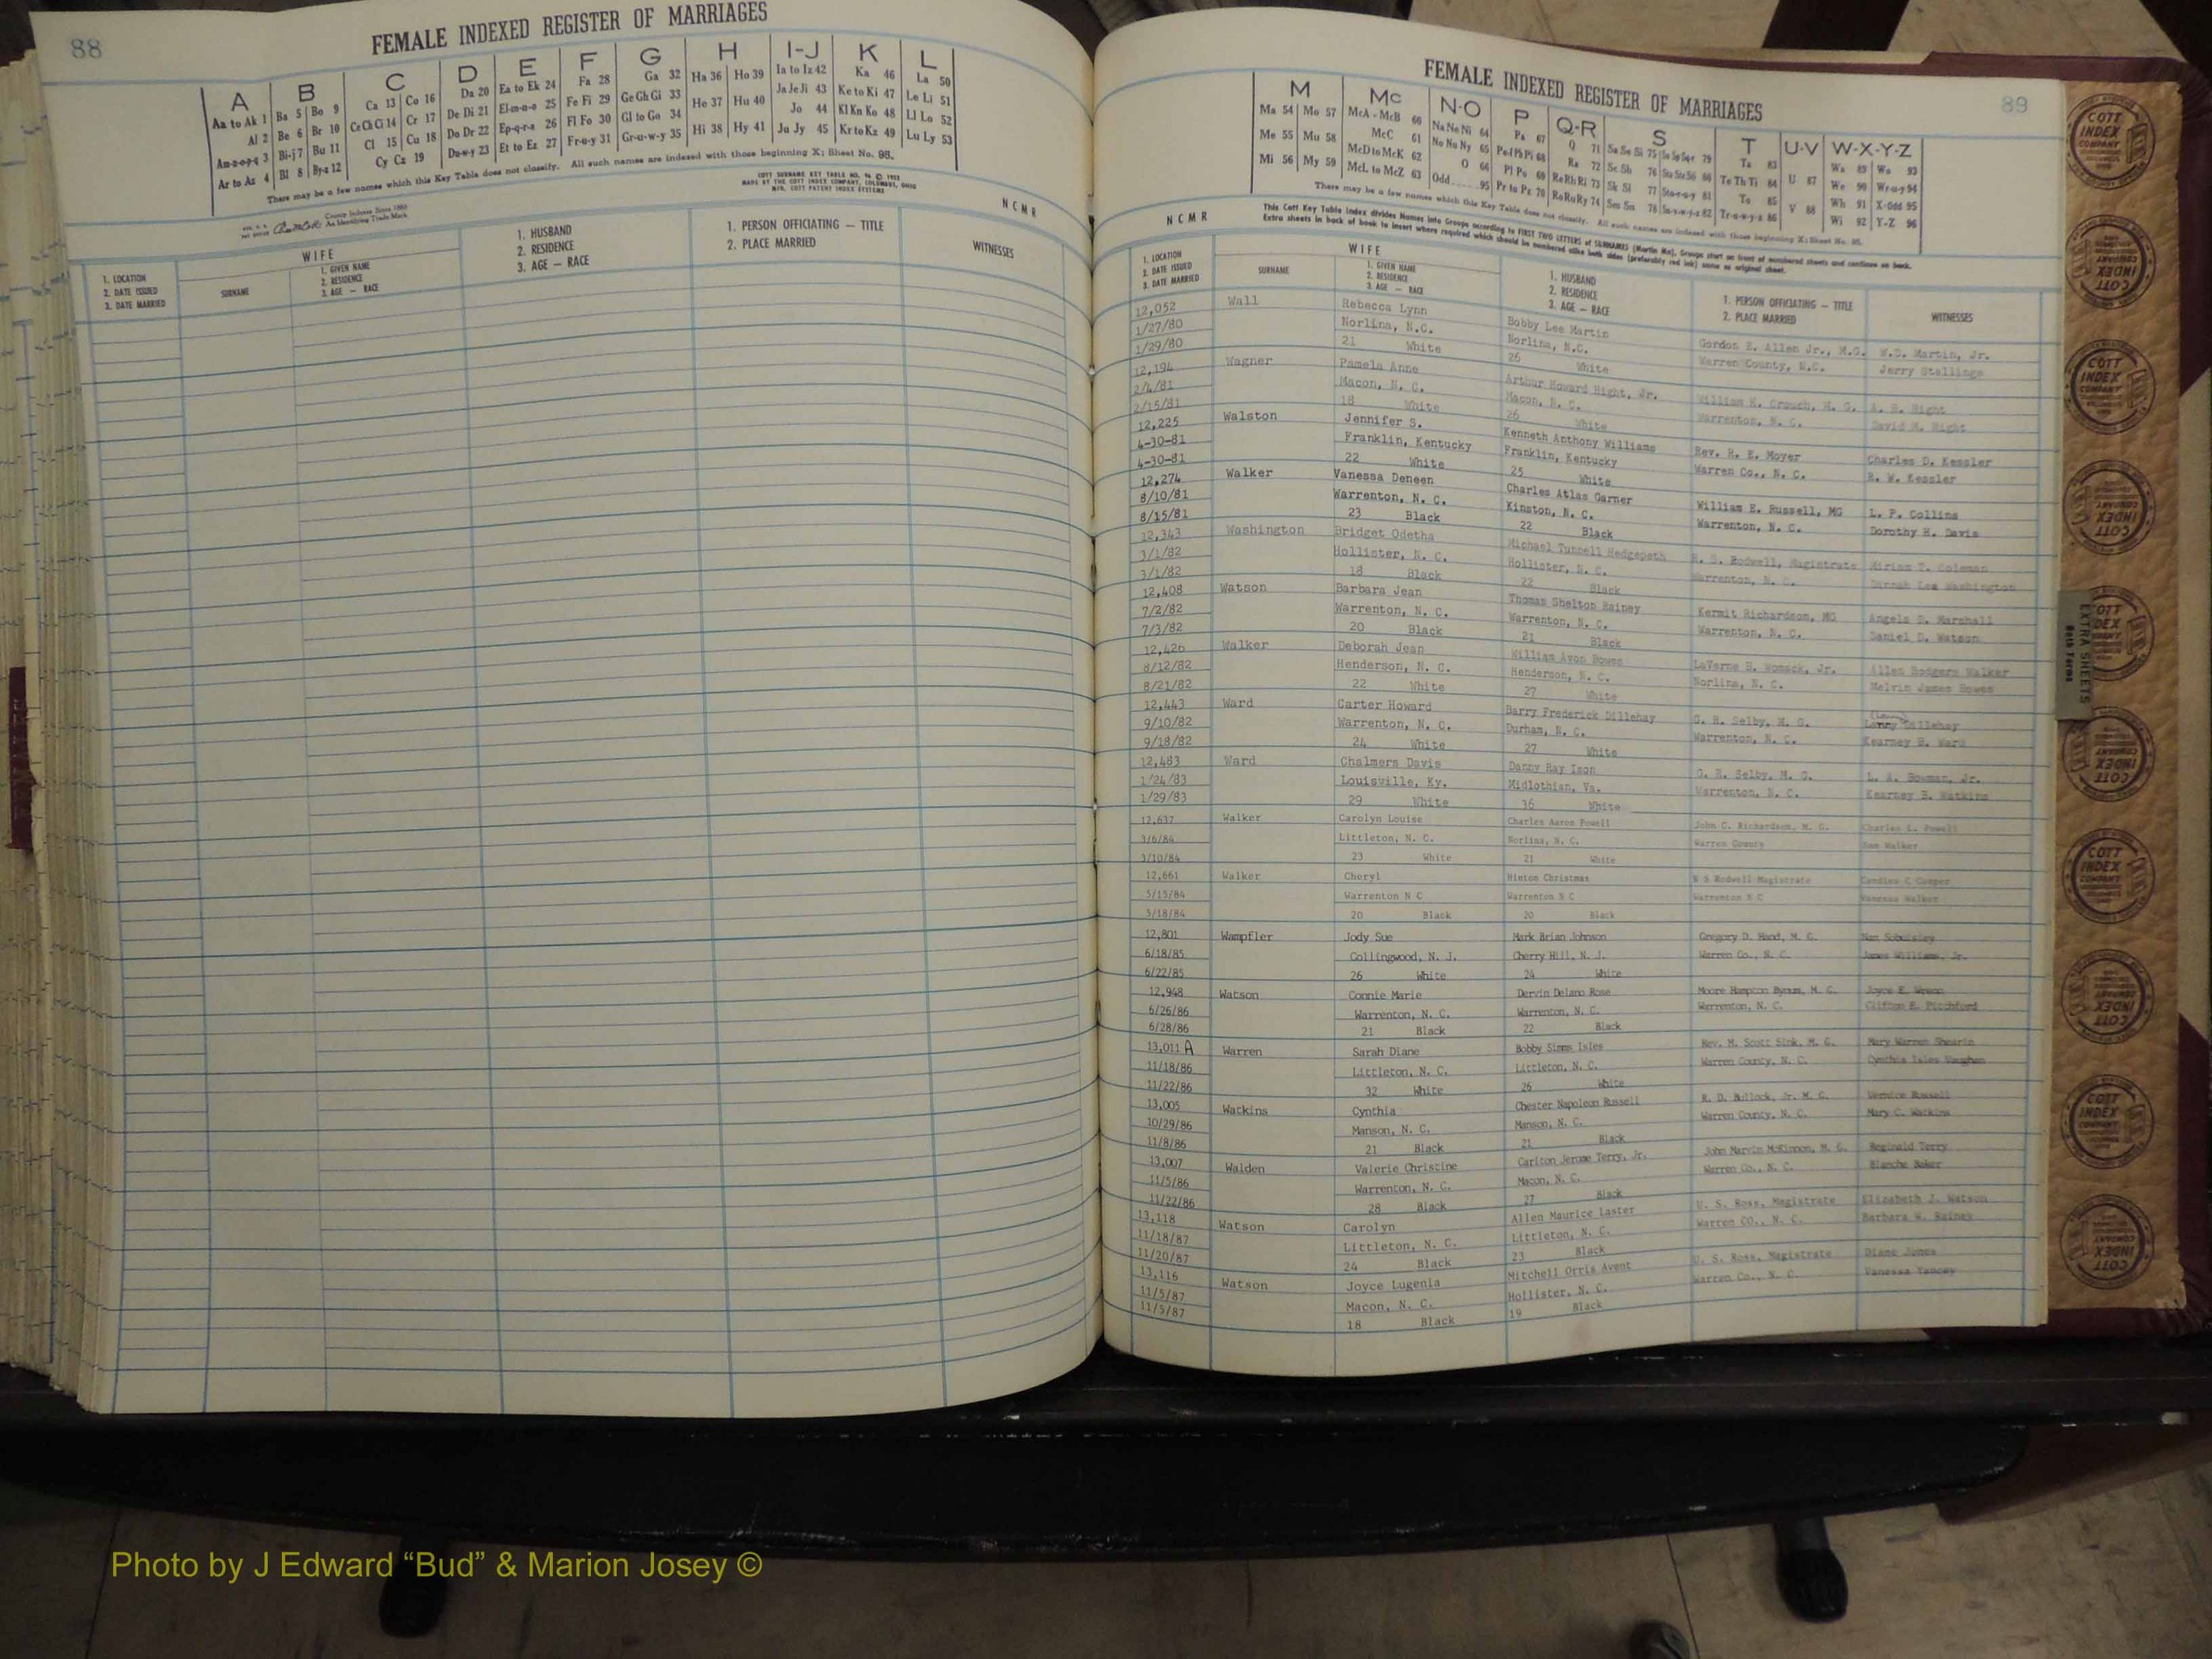 88
FEMALE INDEXED REGISTER OF MARRIAGES
A B C D E F G H I-J K L
Aa to Ak 1 Ba 5 Bo 9 Ca 13 Co 16 Da 20 Ea to Ek 24 Fa 28 Ga 32 Ha 36 Ho 39 Ia to Iz 42 Ka 46 La 50
Al 2 Be 6 Br 10 Ce Ch Ci 14 Cr 17 De Di 21 El-m-n-o 25 Fe Fi 29 Ge Gh Gi 33 He 37 Hu 40 Ja Je Ji 43 Ke to Ki 47 Le Li 51
Am-n-o-p-q 3 Bi-j 7 Bu 11 Cl 15 Cu 18 Do Dr 22 Ep-q-r-s 26 Fl Fo 30 Gl to Go 34 Hi 38 Hy 41 Jo 44 Kl Kn Ko 48 Ll Lo 52
Ar to Az 4 Bl 8 By-z 12 Cy Cz 19 Du-w-y 23 Et to Ez 27 Fr-u-y 31 Gr-u-w-y 35 Ju Jy 45 Kr to Kz 49 Lu Ly 53
There may be a few names which this Key Table does not classify. All such names are indexed with those beginning X; Sheet No. 95.
COTT SURNAME KEY TABLE NO. 96 © 1953
MADE BY THE COTT INDEX COMPANY, COLUMBUS, OHIO
MFD. COTT PATENT INDEX SYSTEMS
County Indexes Since 1888
An Identifying Trade Mark
N C M R
1. LOCATION
2. DATE ISSUED
3. DATE MARRIED
WIFE
SURNAME
1. GIVEN NAME
2. RESIDENCE
3. AGE — RACE
1. HUSBAND
2. RESIDENCE
3. AGE — RACE
1. PERSON OFFICIATING — TITLE
2. PLACE MARRIED
WITNESSES
FEMALE INDEXED REGISTER OF MARRIAGES
89
M Mc N-O P Q-R S T U-V W-X-Y-Z
Ma 54 Mo 57 McA - McB 60 Na Ne Ni 64 Pa 67 Q 71 Ta 83 Wa 89 Wo 93
Me 55 Mu 58 McC 61 No Nu Ny 65 Ra 72 Te Th Ti 84 U 87 We 90 Wr-u-y 94
Mi 56 My 59 McD to McK 62 O 66 Pl Po 69 Re Rh Ri 73 Sk Sl 77 To 85 Wh 91 X-Odd 95
McL to McZ 63 Odd......95 Pr to Pz 70 Ro Ru Ry 74 Sm Sn 78 Tr-u-w-y-z 86 V 88 Wi 92 Y-Z 96
There may be a few names which this Key Table does not classify. All such names are indexed with those beginning X; Sheet No. 95.
This Cott Key Table Index divides Names into Groups according to FIRST TWO LETTERS of SURNAMES (Martin Ma). Groups start on front of numbered sheets and continue on back.
Extra sheets in back of book to insert where required which should be numbered alike both sides (preferably red ink) same as original sheet.
N C M R
1. LOCATION
2. DATE ISSUED
3. DATE MARRIED
WIFE
SURNAME
1. GIVEN NAME
2. RESIDENCE
3. AGE — RACE
1. HUSBAND
2. RESIDENCE
3. AGE — RACE
1. PERSON OFFICIATING — TITLE
2. PLACE MARRIED
WITNESSES
12,052 Wall Rebecca Lynn Bobby Lee Martin Gordon E. Allen Jr., M.G. W.D. Martin, Jr.
1/27/80 Norlina, N.C. Norlina, N.C. Warren County, N.C. Jerry Stallings
1/29/80 21 White 26 White
12,194 Wagner Pamela Anne Arthur Howard Hight, Jr. William K. Crouch, M. G. A. H. Hight
2/4/81 Macon, N. C. Macon, N. C. Warrenton, N. C. David M. Hight
2/15/81 18 White 26 White
12,225 Walston Jennifer S. Kenneth Anthony Williams Rev. R. E. Moyer Charles D. Kessler
4-30-81 Franklin, Kentucky Franklin, Kentucky Warren Co., N. C. R. W. Kessler
4-30-81 22 White 25 White
12,274 Walker Vanessa Deneen Charles Atlas Garner William E. Russell, MG L. P. Collins
8/10/81 Warrenton, N. C. Kinston, N. C. Warrenton, N. C. Dorothy H. Davis
8/15/81 23 Black 22 Black
12,343 Washington Bridget Odetha Michael Tunnell Hedgepeth R. S. Rodwell, Magistrate Miriam T. Coleman
3/1/82 Hollister, N. C. Hollister, N. C. Warrenton, N. C. Lee Washington
3/1/82 18 Black 22 Black
12,408 Watson Barbara Jean Thomas Shelton Rainey Kermit Richardson, MG Angela D. Marshall
7/2/82 Warrenton, N. C. Warrenton, N. C. Warrenton, N. C. Daniel D. Watson
7/3/82 20 Black 21 Black
12,426 Walker Deborah Jean William Avon Bowes LaVerne H. Womack, Jr. Allen Rodgers Walker
8/12/82 Henderson, N. C. Henderson, N. C. Norlina, N. C. Melvin James Bowes
8/21/82 22 White 27 White
12,443 Ward Carter Howard Barry Frederick Dillehay G. R. Selby, M. G. Dillehay
9/10/82 Warrenton, N. C. Durham, N. C. Warrenton, N. C. Kearney B. Ward
9/18/82 24 White 27 White
12,483 Ward Chalmers Davis Danny Ray Ison G. R. Selby, M. G. L. A. Bowman, Jr.
1/24/83 Louisville, Ky. Midlothian, Va. Warrenton, N. C. Kearney B. Watkins
1/29/83 29 White 36 White
12,637 Walker Carolyn Louise Charles Aaron Powell John C. Richardson, M. G. Charles L. Powell
3/6/84 Littleton, N. C. Norlina, N. C. Warren County Sam Walker
3/10/84 23 White 21 White
12,661 Walker Cheryl Hinton Christmas R S Rodwell Magistrate Candice C Cooper
5/15/84 Warrenton N C Warrenton N C Warrenton N C Vanessa Walker
5/18/84 20 Black 20 Black
12,801 Wampfler Jody Sue Mark Brian Johnson Gregory D. Hand, M. G. Nan
6/18/85 Collingwood, N. J. Cherry Hill, N. J. Warren Co., N. C. James Williams, Jr.
6/22/85 26 White 24 White
12,948 Watson Connie Marie Dervin Delano Rose Moore Hampton Bynum, M. G. Joyce E.
6/26/86 Warrenton, N. C. Warrenton, N. C. Warrenton, N. C. Clifton E. Pitchford
6/28/86 21 Black 22 Black
13,011 A Warren Sarah Diane Bobby Simms Isles Rev. M. Scott Sink, M. G. Mary Warren Shearin
11/18/86 Littleton, N. C. Littleton, N. C. Warren County, N. C. Cynthia Isles Vaughan
11/22/86 32 White 26 White
13,005 Watkins Cynthia Chester Napoleon Russell R. D. Bullock, Jr. M. G. Vernice Russell
10/29/86 Manson, N. C. Manson, N. C. Warren County, N. C. Mary C. Watkins
11/8/86 21 Black 21 Black
13,007 Walden Valerie Christine Carlton Jerome Terry, Jr. John Marvin McKinnon, M. G. Reginald Terry
11/5/86 Warrenton, N. C. Macon, N. C. Warren Co., N. C. Blanche Baker
11/22/86 28 Black 27 Black
13,118 Watson Carolyn Allen Maurice Laster U. S. Ross, Magistrate Elizabeth J. Watson
11/18/87 Littleton, N. C. Littleton, N. C. Warren CO., N. C. Barbara W. Rainey
11/20/87 24 Black 23 Black
13,116 Watson Joyce Lugenia Mitchell Orris Avent U. S. Ross, Magistrate Diane Jones
11/5/87 Macon, N. C. Hollister, N. C. Warren Co., N. C. Vanessa Yancey
11/5/87 18 Black 19 Black
EXTRA SHEETS
Both Terms
COTT INDEX COMPANY
Photo by J Edward “Bud” & Marion Josey ©